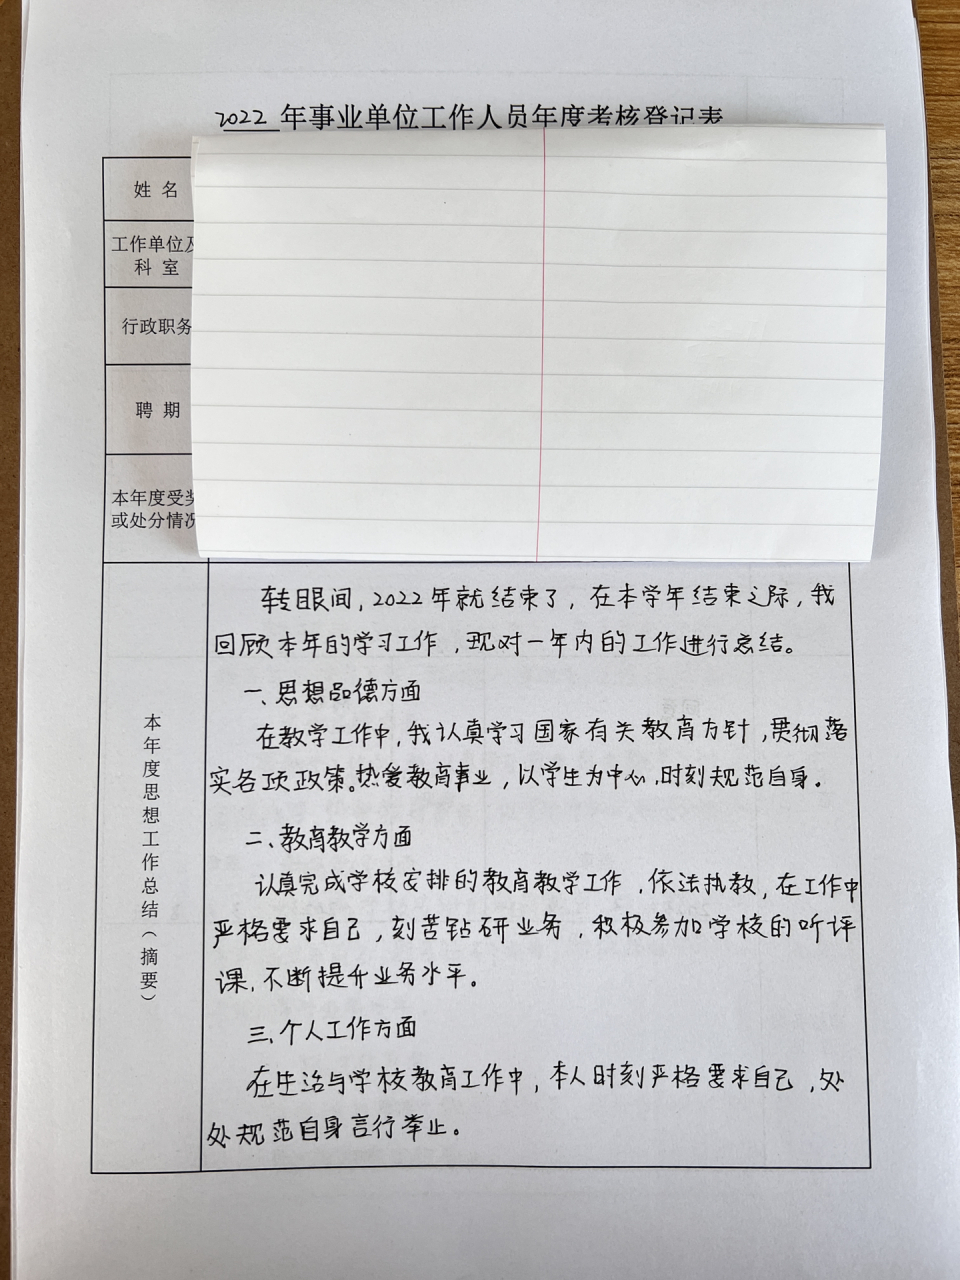 2022 年事业单位工作人员年度考核登记表
姓 名
工作单位及
科 室
行政职务
聘 期
本年度受奖
或处分情况
本年度思想工作总结（摘要）
转眼间，2022年就结束了，在本学年结束之际，我
回顾本年的学习工作，现对一年内的工作进行总结。
一、思想品德方面
在教学工作中，我认真学习国家有关教育方针，贯彻落
实各项政策。热爱教育事业，以学生为中心，时刻规范自身。
二、教育教学方面
认真完成学校安排的教育教学工作，依法执教，在工作中
严格要求自己，刻苦钻研业务，积极参加学校的听评
课，不断提升业务水平。
三、个人工作方面
在生活与学校教育工作中，本人时刻严格要求自己，处
处规范自身言行举止。